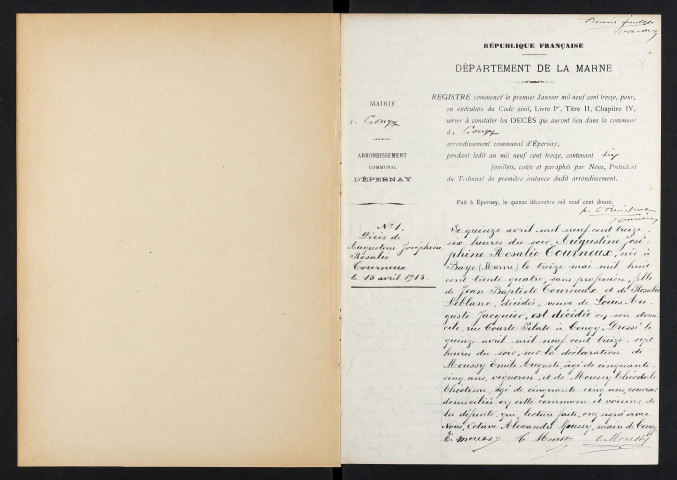 Premier feuillet
RÉPUBLIQUE FRANÇAISE
DÉPARTEMENT DE LA MARNE
MAIRIE
de Congy
ARRONDISSEMENT
COMMUNAL
D'ÉPERNAY
REGISTRE commencé le premier Janvier mil neuf cent treize, pour,
en exécution du Code civil, Livre Ier, Titre II, Chapitre IV,
servir à constater les DÉCÈS qui auront lieu dans la commune
de Congy
arrondissement communal d'Épernay,
pendant ledit an mil neuf cent treize, contenant six
feuillets, cotés et paraphés par Nous, Président
du Tribunal de première instance dudit arrondissement.
Fait à Épernay, le quinze décembre mil neuf cent douze.
p. le Président
N° 1.
Décès de
Augustine Joséphine
Rosalie
Tourneux
le 15 avril 1913.
Le quinze avril mil neuf cent treize
six heures du soir, Augustine José-
phine Rosalie Tourneux, née à
Baye (Marne) le treize mai mil huit
cent trente quatre, sans profession, fille
de Jean Baptiste Tourneux et de Rosalie
Leblanc, décédés, veuve de Louis Au-
guste Jacquier, est décédée en son domi-
cile, rue Courte Pilate à Congy. Dressé le
quinze avril mil neuf cent treize, sept
heures du soir, sur la déclaration de
Moussy Emile Auguste, âgé de cinquante-
cinq ans, vigneron, et de Moussy Théodule
âgé de cinquante cinq ans,
domiciliés en cette commune et voisins de
la défunte, qui, lecture faite, ont signé avec
Nous, Octave Alexandre Moussy, maire de Congy
E. Moussy T. Moussy O. Moussy